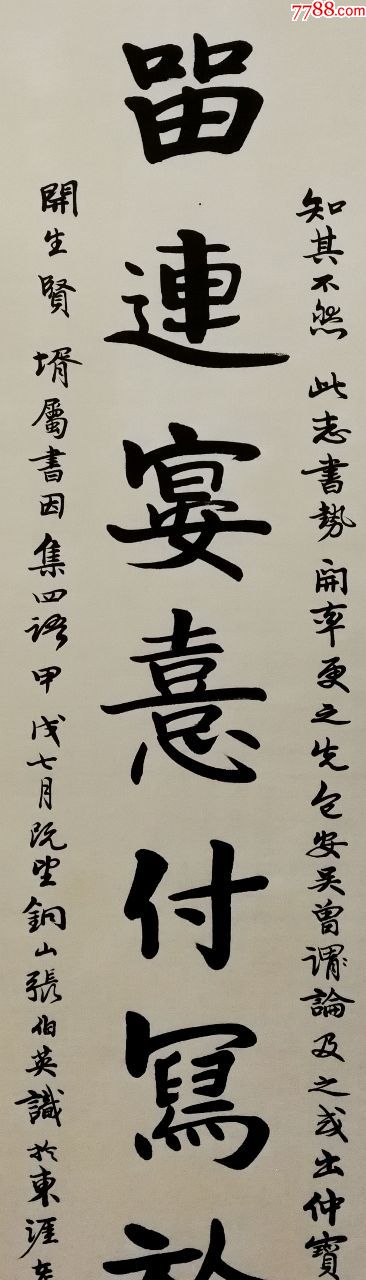 7788.com
知其不然此志书势開率更之先包安吴曾谓論及之或出仲寶
畱連宴憙付寫於
開生賢壻屬書因集四語甲戌七月既望銅山張伯英識於東涯